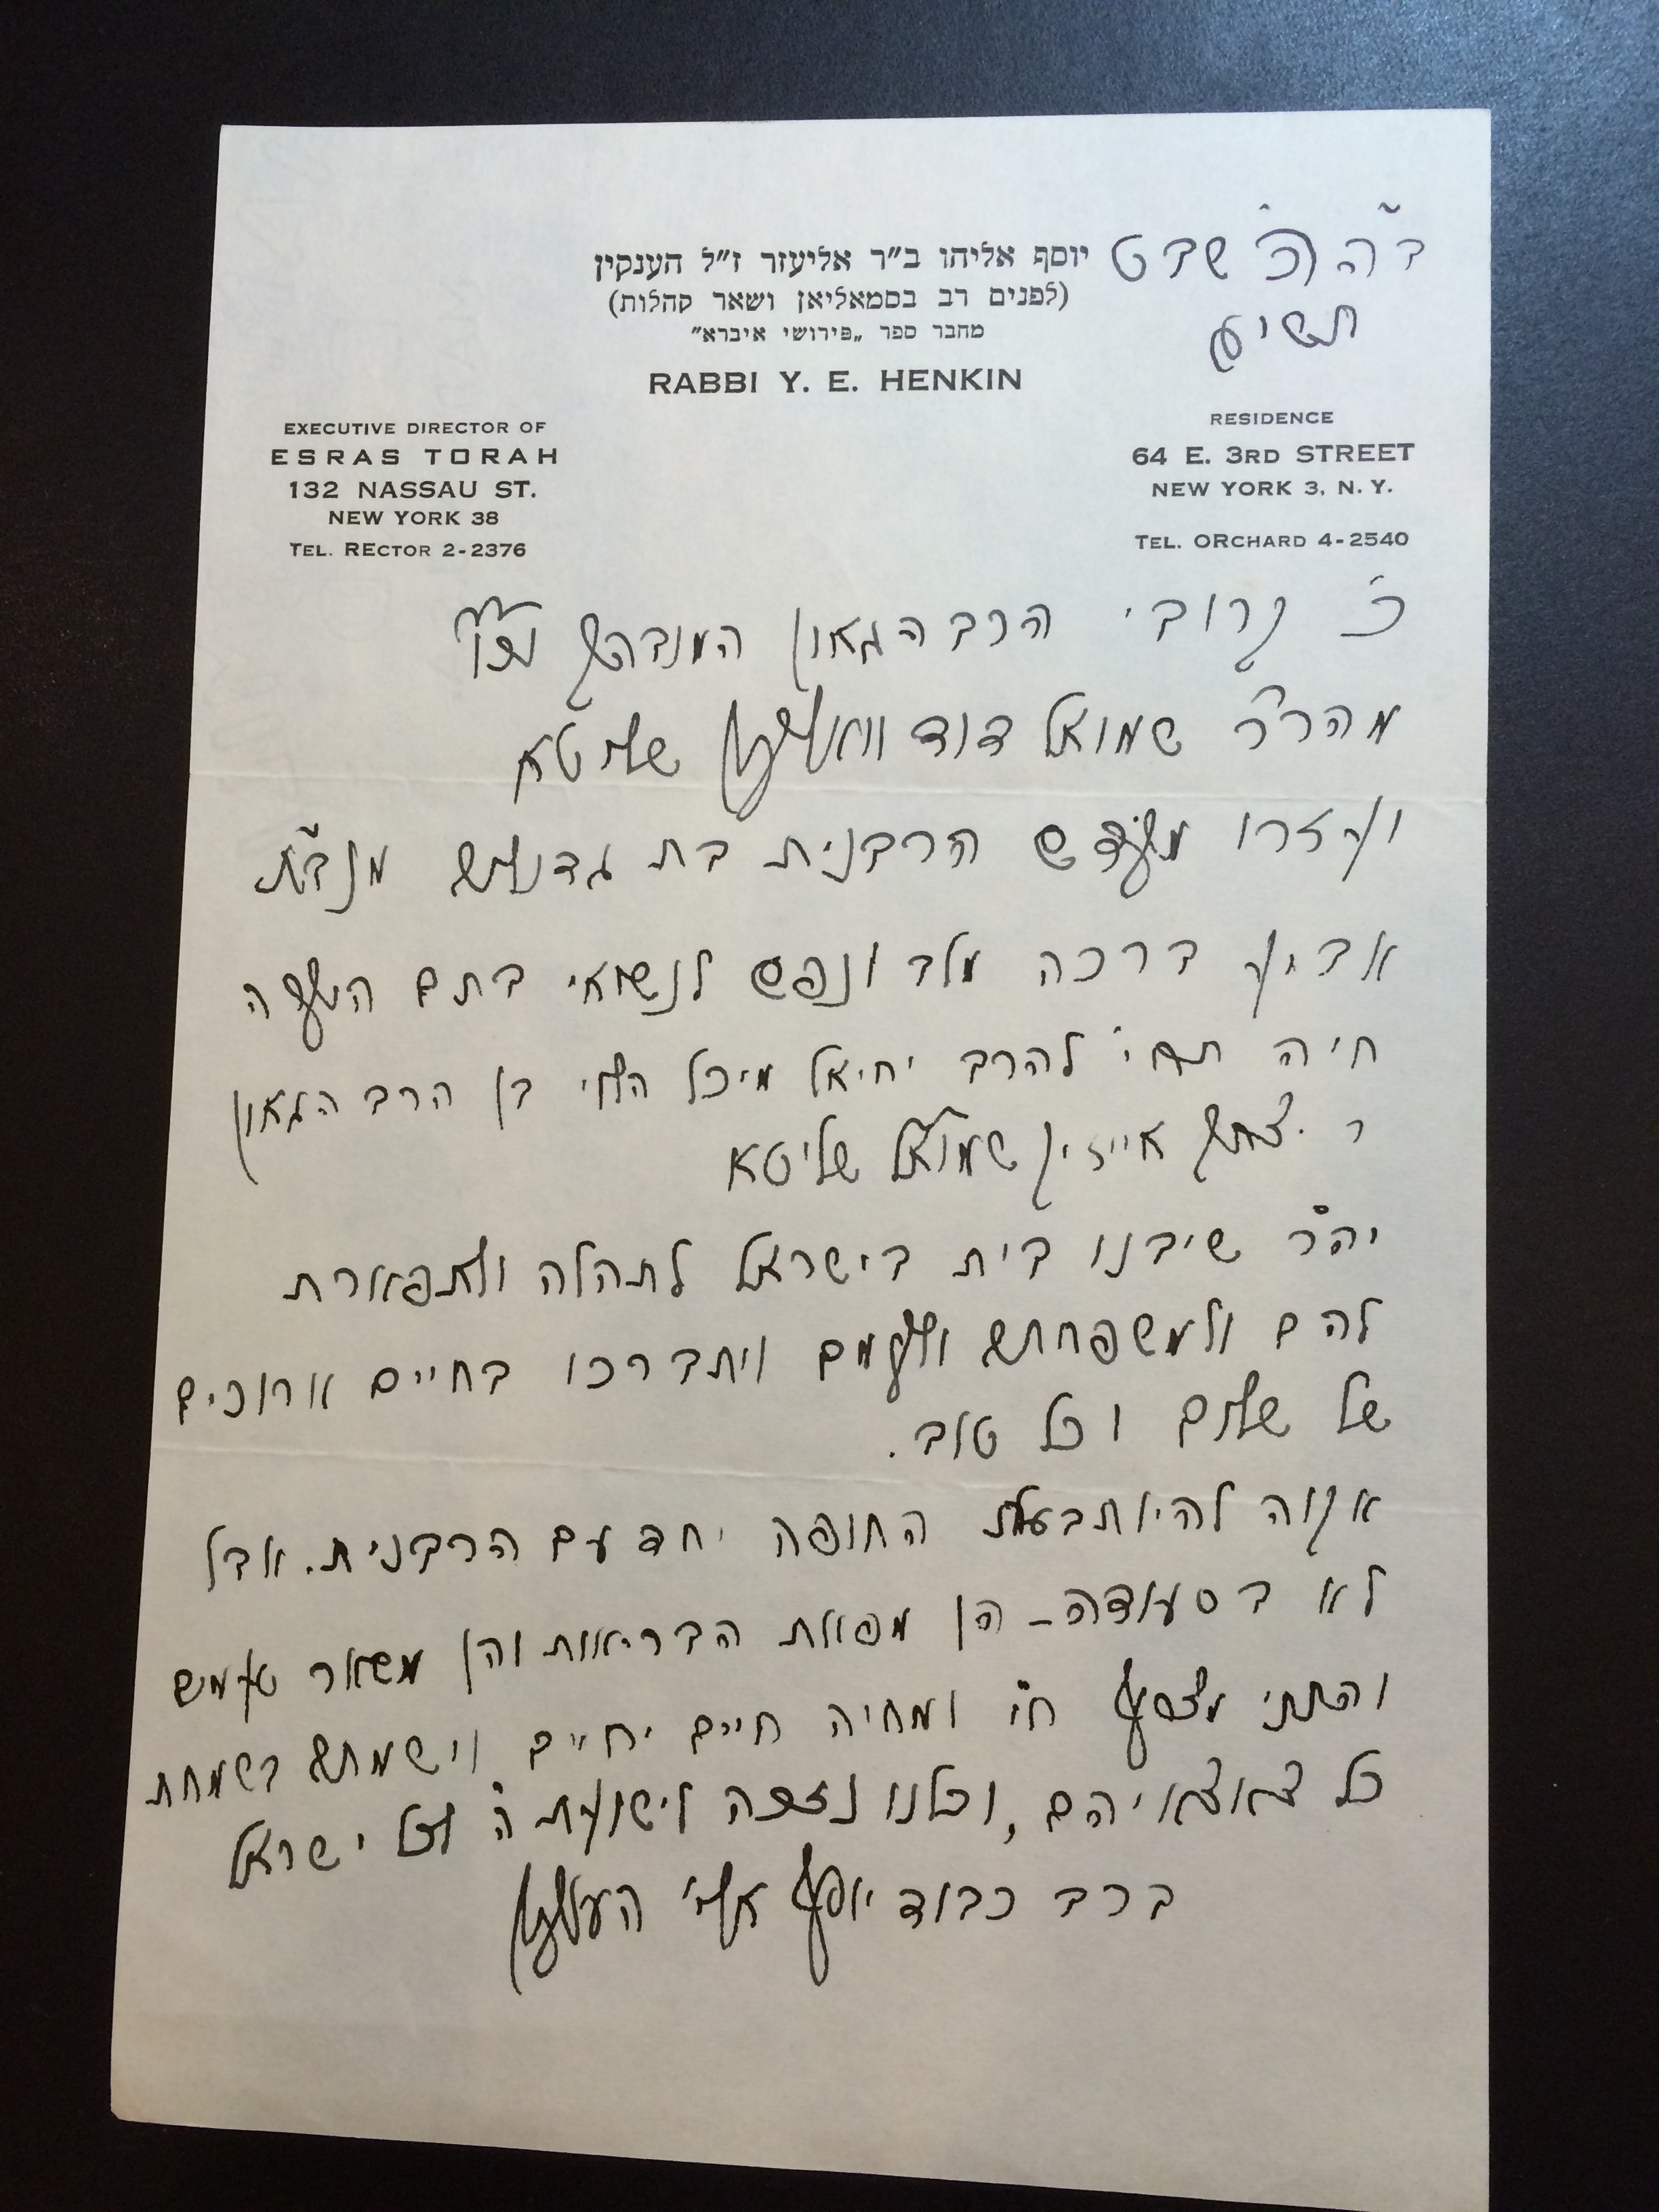 ב"ה כ' שבט
יוסף אליהו ב"ר אליעזר ז"ל הענקין
תשי"ט
(לפנים רב בסמאליאן ושאר קהלות)
מחבר ספר „פירושי איברא"
RABBI Y. E. HENKIN
EXECUTIVE DIRECTOR OF
ESRAS TORAH
132 NASSAU ST.
NEW YORK 38
TEL. RECTOR 2-2376
RESIDENCE
64 E. 3RD STREET
NEW YORK 3, N. Y.
TEL. ORCHARD 4-2540
כ' קרובי הרב הגאון המובהק
מהר"ר שמואל דוד שליטא
ועזרו הרבנית בת גדולים מנב"ת
אביע ברכה מלב ונפש לנשואי בתם הכלה
חיה תחי' להרב יחיאל מיכל הלוי בן הרב הגאון
ר' יצחק אייזיק שמואל שליטא
יה"ר שיבנו בית בישראל לתהלה ולתפארת
להם ולמשפחתם ולעמם ויתברכו בחיים ארוכים
של שלום וכל טוב.
אקוה להיות בעת החופה יחד עם הרבנית. אבל
לא בסעודה – הן מפאת הבריאות והן משאר טעמים
ח"י ומחיה חיים יחיים וישמחם בשמחת
כל צאצאיהם, וכלנו נזכה לישועת ה' לכל ישראל
ברב כבוד יוסף אלי' הענקין